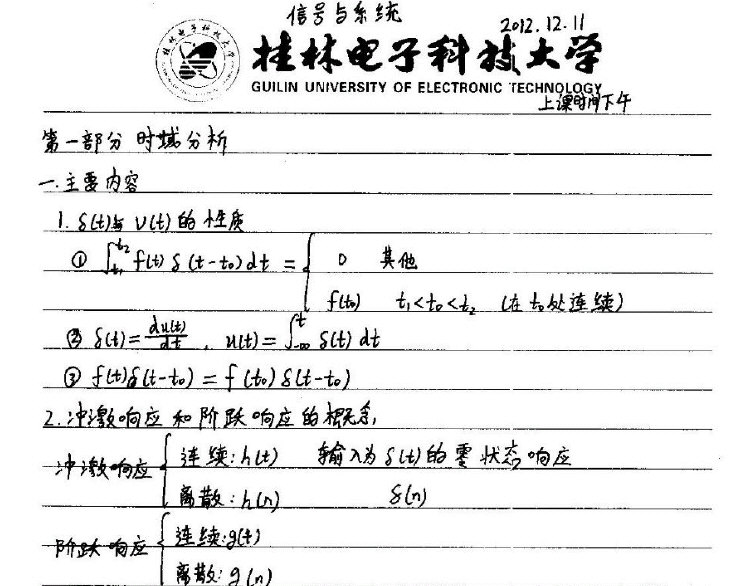 信号与系统
2012.12.11
桂林电子科技大学
GUILIN UNIVERSITY OF ELECTRONIC TECHNOLOGY
上课时间下午
第一部分 时域分析
一.主要内容
1. δ(t)与 U(t)的性质
① ∫_{t₁}^{t₂} f(t) δ(t-t₀)dt = { 0 其他
f(t₀) t₁<t₀<t₂ (在t₀处连续)
② δ(t)=du(t)/dt , u(t)=∫_{-∞}^{t} δ(t) dt
③ f(t)δ(t-t₀) = f(t₀) δ(t-t₀)
2.冲激响应和阶跃响应的概念
冲激响应 { 连续:h(t) 输入为δ(t)的零状态响应
离散:h(n) δ(n)
阶跃响应 { 连续:g(t)
离散:g(n)